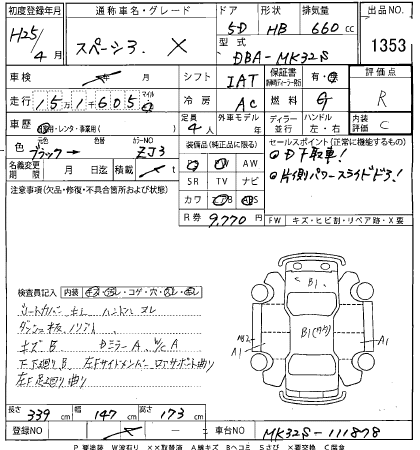 初度登録年月 通称車名・グレード ドア 形状 排気量 出品NO.
H25/4月 スペーシア. X 5D HB 660cc
型式 DBA-MK32S 1353
車検 年 月 シフト IAT 保証書 有・無 評価点
走行 151605 マイル km 冷房 AC 燃料 G R
車歴 自家用・レンタ・事業用( ) 定員 4人 外車モデル 年 ディーラー 並行 ハンドル 左・右 内装評価 C
色 元色 ブラック→ 色替 カラーNO ZJ3 装備品(純正品に限る) セールスポイント(正常に機能するもの)
PS PW AW ◎DT下取車!
名義変更期限 月 日迄 積載 t SR TV ナビ ◎片側パワースライドドア!
注意事項(欠品・修復・不具合箇所および状態) カワ エアB ABS
R券 9,770円 FW キズ・ヒビ割・リペア跡・X要
検査員記入 内装 キズ・汚レ・コゲ・穴・スレ・毛
シートカバー キレ ハンドル スレ
ダッシュ板 ノリアト
キズ B Dミラー A W/C A
下廻り B 左Fサイドメンバー ロアサポート曲り
左F足廻り曲り
B1
A1 B1(タワ) A1
長さ 339cm 幅 147cm 高さ 173cm
登録NO 車台NO MK32S-111878
P 要塗装 W波有り ××取替済 A線キズ Bヘコミ Sさび ×要交換 C腐食